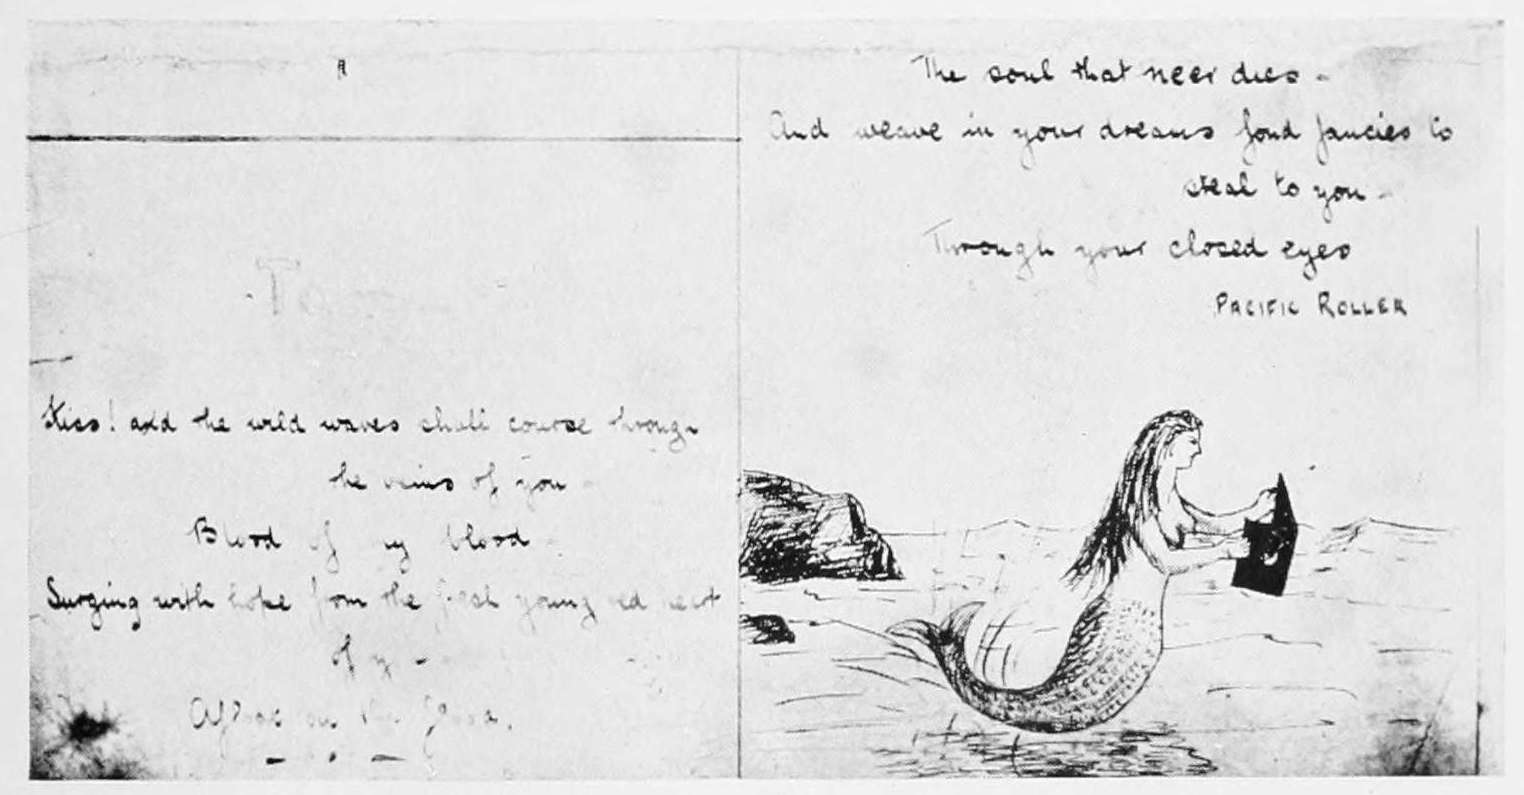 Kiss! and the wild waves shall course through
the veins of you -
Blood of my blood
Surging with hope from the young red heart
of
on the
The soul that neer dies -
And weave in your dreams fond fancies to
steal to you -
Through your closed eyes
PACIFIC ROLLER